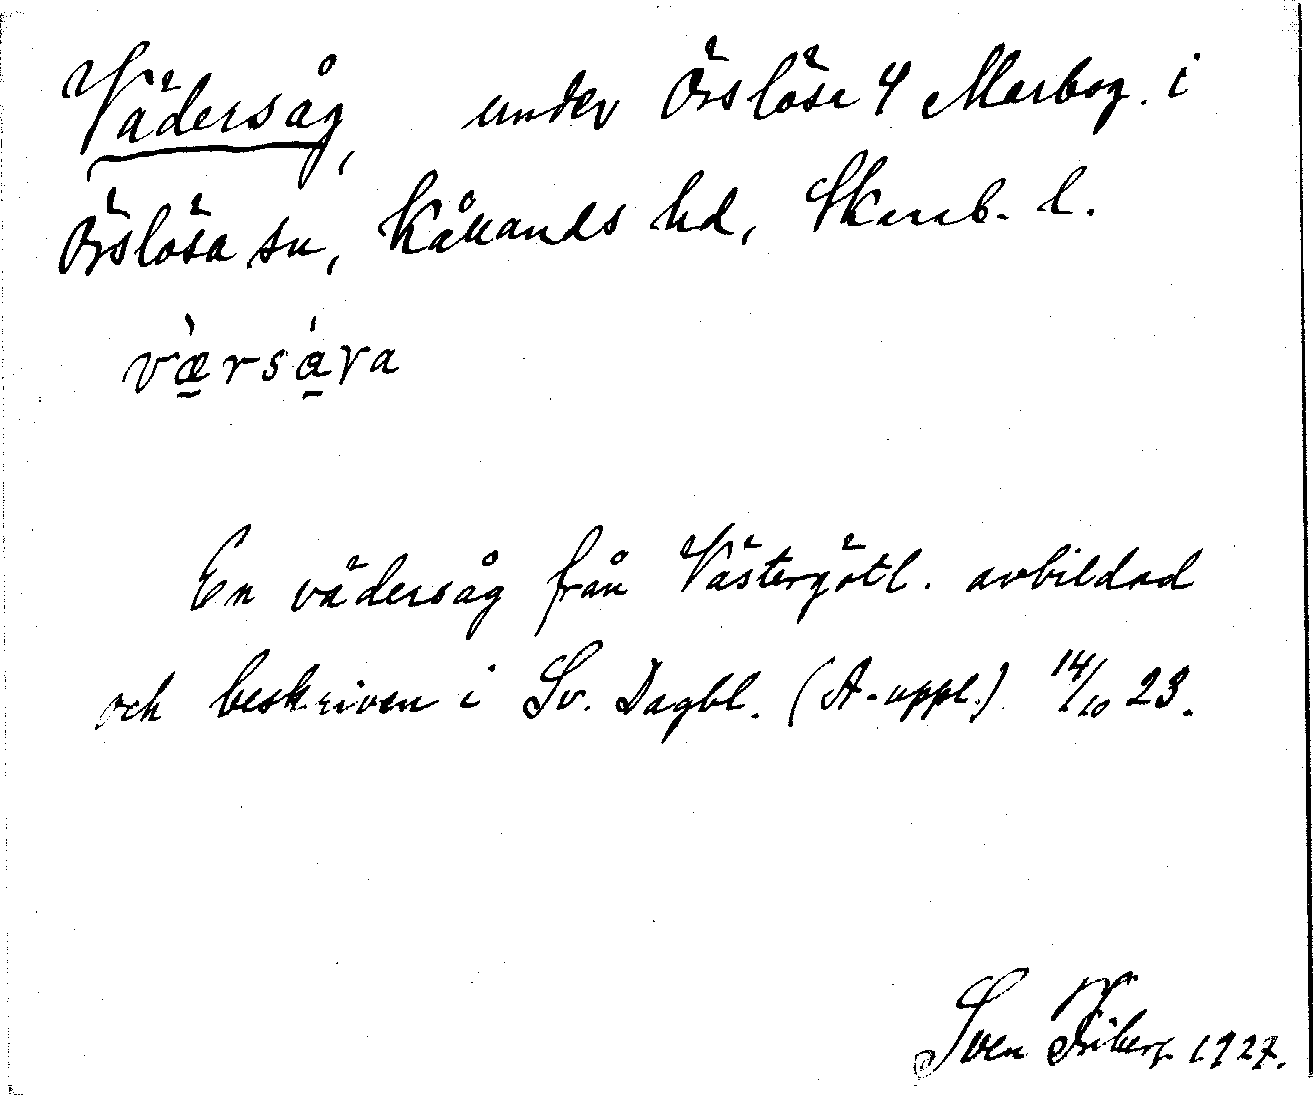 Vädersåg, under Örslösa 4 Marbog. i
Örslösa sn, Kållands hd, Skarab. l.
v̀æ̱rsà̱va
En vädersåg från Västergötl. avbildad
och beskriven i Sv. Dagbl. (A-uppl.) 14/10 23.
Sven Friberg 1927.